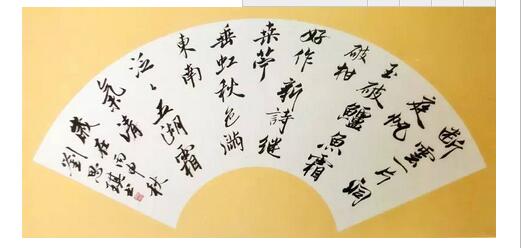 断雲一片洞
庭帆
玉破鱸魚霜
破柑
好作新詩继
桑苧
垂虹秋色滿
東南
泛々五湖霜
氣清
歲在丙申秋
劉思書